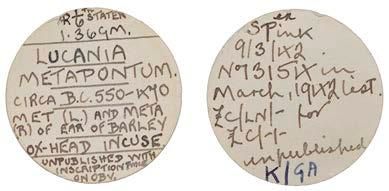 STATER
1.36GM.
LUCANIA
METAPONTUM.
CIRCA B.C. 550-470
MET (L.) AND META
(R) OF EAR OF BARLEY
OX-HEAD INCUSE
UNPUBLISHED WITH
INSCRIPTION
ON OBV.
ex
Spink
9/3/1X2
in
March, 19X2 list.
£C/LN/- for
£C/-/-
unpublished
K/GA